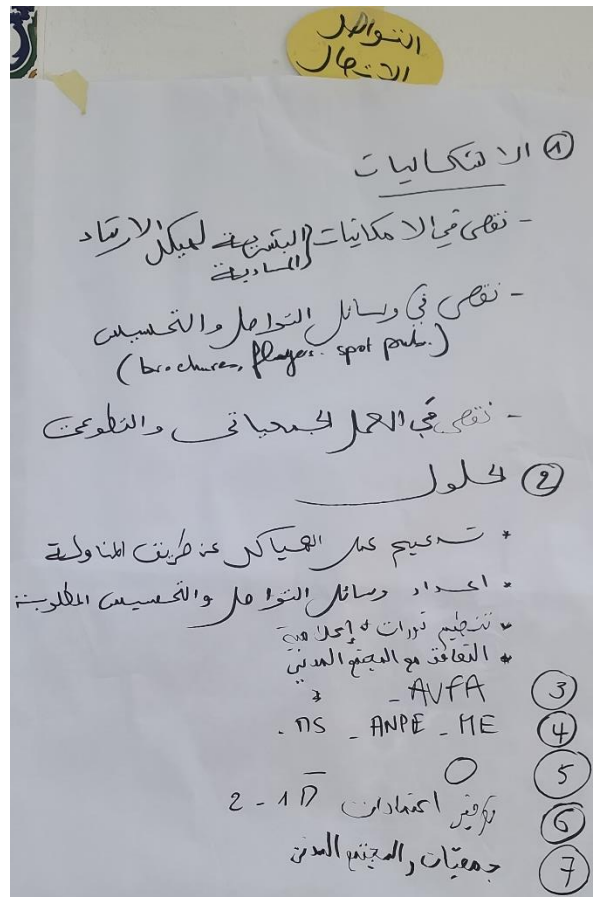 التواصل
الاتصال
① الاشكاليات
- نقص في الامكانيات البشرية لهيكل الارشاد
المادية
- نقص في وسائل التواصل والتحسيس
(brochures, flayers. spot pub.)
- نقص في العمل الجمعياتي والتطوعي
② الحلول
* تدعيم عمل الهياكل عن طريق المناولة
* اعداد وسائل التواصل والتحسيس المطلوبة
* تنظيم دورات إعلامية
* التعاقد مع المجتمع المدني
③ AVFA -
④ ME - ANPE - MS .
⑤
⑥ توفير اعتمادات 1 - 2
⑦ جمعيات والمجتمع المدني